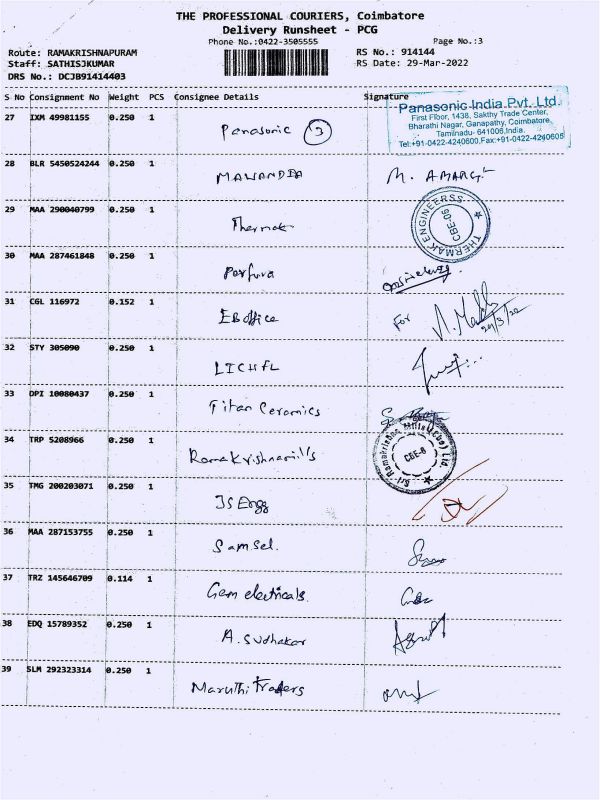 THE PROFESSIONAL COURIERS, Coimbatore
Delivery Runsheet - PCG
Phone No.:0422-3505555 Page No.:3
Route: RAMAKRISHNAPURAM RS No.: 914144
Staff: SATHISJKUMAR RS Date: 29-Mar-2022
DRS No.: DCJB91414403
S No Consignment No Weight PCS Consignee Details Signature
Panasonic India Pvt. Ltd.
First Floor, 1438, Sakthy Trade Center,
Bharathi Nagar, Ganapathy, Coimbatore,
Tamilnadu- 641006,India.
Tel:+91-0422-4240600,Fax:+91-0422-4240605
27 IXM 49981155 0.250 1 Panasonic 3
28 BLR 5450524244 0.250 1 MAWANDIA M. AMARG
29 MAA 290040799 0.250 1 Thermak
THERMAK ENGINEERSS
CBE-06
30 MAA 287461848 0.250 1 Porfura
31 CGL 116972 0.152 1 EB office For
29/3/22
32 STY 305090 0.250 1 LICHFL
33 DPI 10080437 0.250 1 Titan Ceramics
34 TRP 5208966 0.250 1 Ramakrishnamills
Sri. Ramakrishna Mills (Cbe) Ltd.
CBE-6
35 TMG 200203071 0.250 1 JS Engg
36 MAA 287153755 0.250 1 Samsel.
37 TRZ 145646709 0.114 1 Gem electricals.
38 EDQ 15789352 0.250 1 A. Sudhakar
39 SLM 292323314 0.250 1 Maruthi Traders